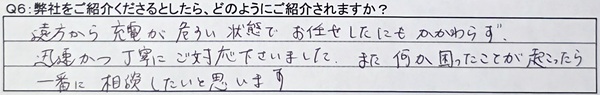 Q6:弊社をご紹介くださるとしたら、どのようにご紹介されますか?
遠方から 充電が 危うい 状態で お任せしたにも かかわらず、
迅速かつ 丁寧に ご対応下さいました。 また 何か 困ったことが 起こったら
一番に 相談したいと思います